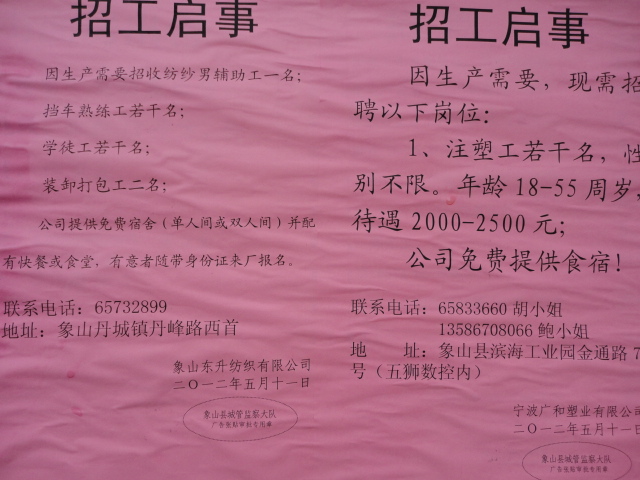 招工启事
因生产需要招收纺纱男辅助工一名;
挡车熟练工若干名;
学徒工若干名;
装卸打包工二名;
公司提供免费宿舍（单人间或双人间）并配
有快餐或食堂，有意者随带身份证来厂报名。
联系电话：65732899
地址：象山丹城镇丹峰路西首
象山东升纺织有限公司
二〇一二年五月十一日
象山县城管监察大队
广告张贴审批专用章
招工启事
因生产需要，现需招
聘以下岗位：
1、注塑工若干名，性
别不限。年龄 18-55 周岁，
待遇 2000-2500 元;
公司免费提供食宿！
联系电话：65833660 胡小姐
13586708066 鲍小姐
地 址：象山县滨海工业园金通路 7
号（五狮数控内）
宁波广和塑业有限公司
二〇一二年五月十一日
象山县城管监察大队
广告张贴审批专用章